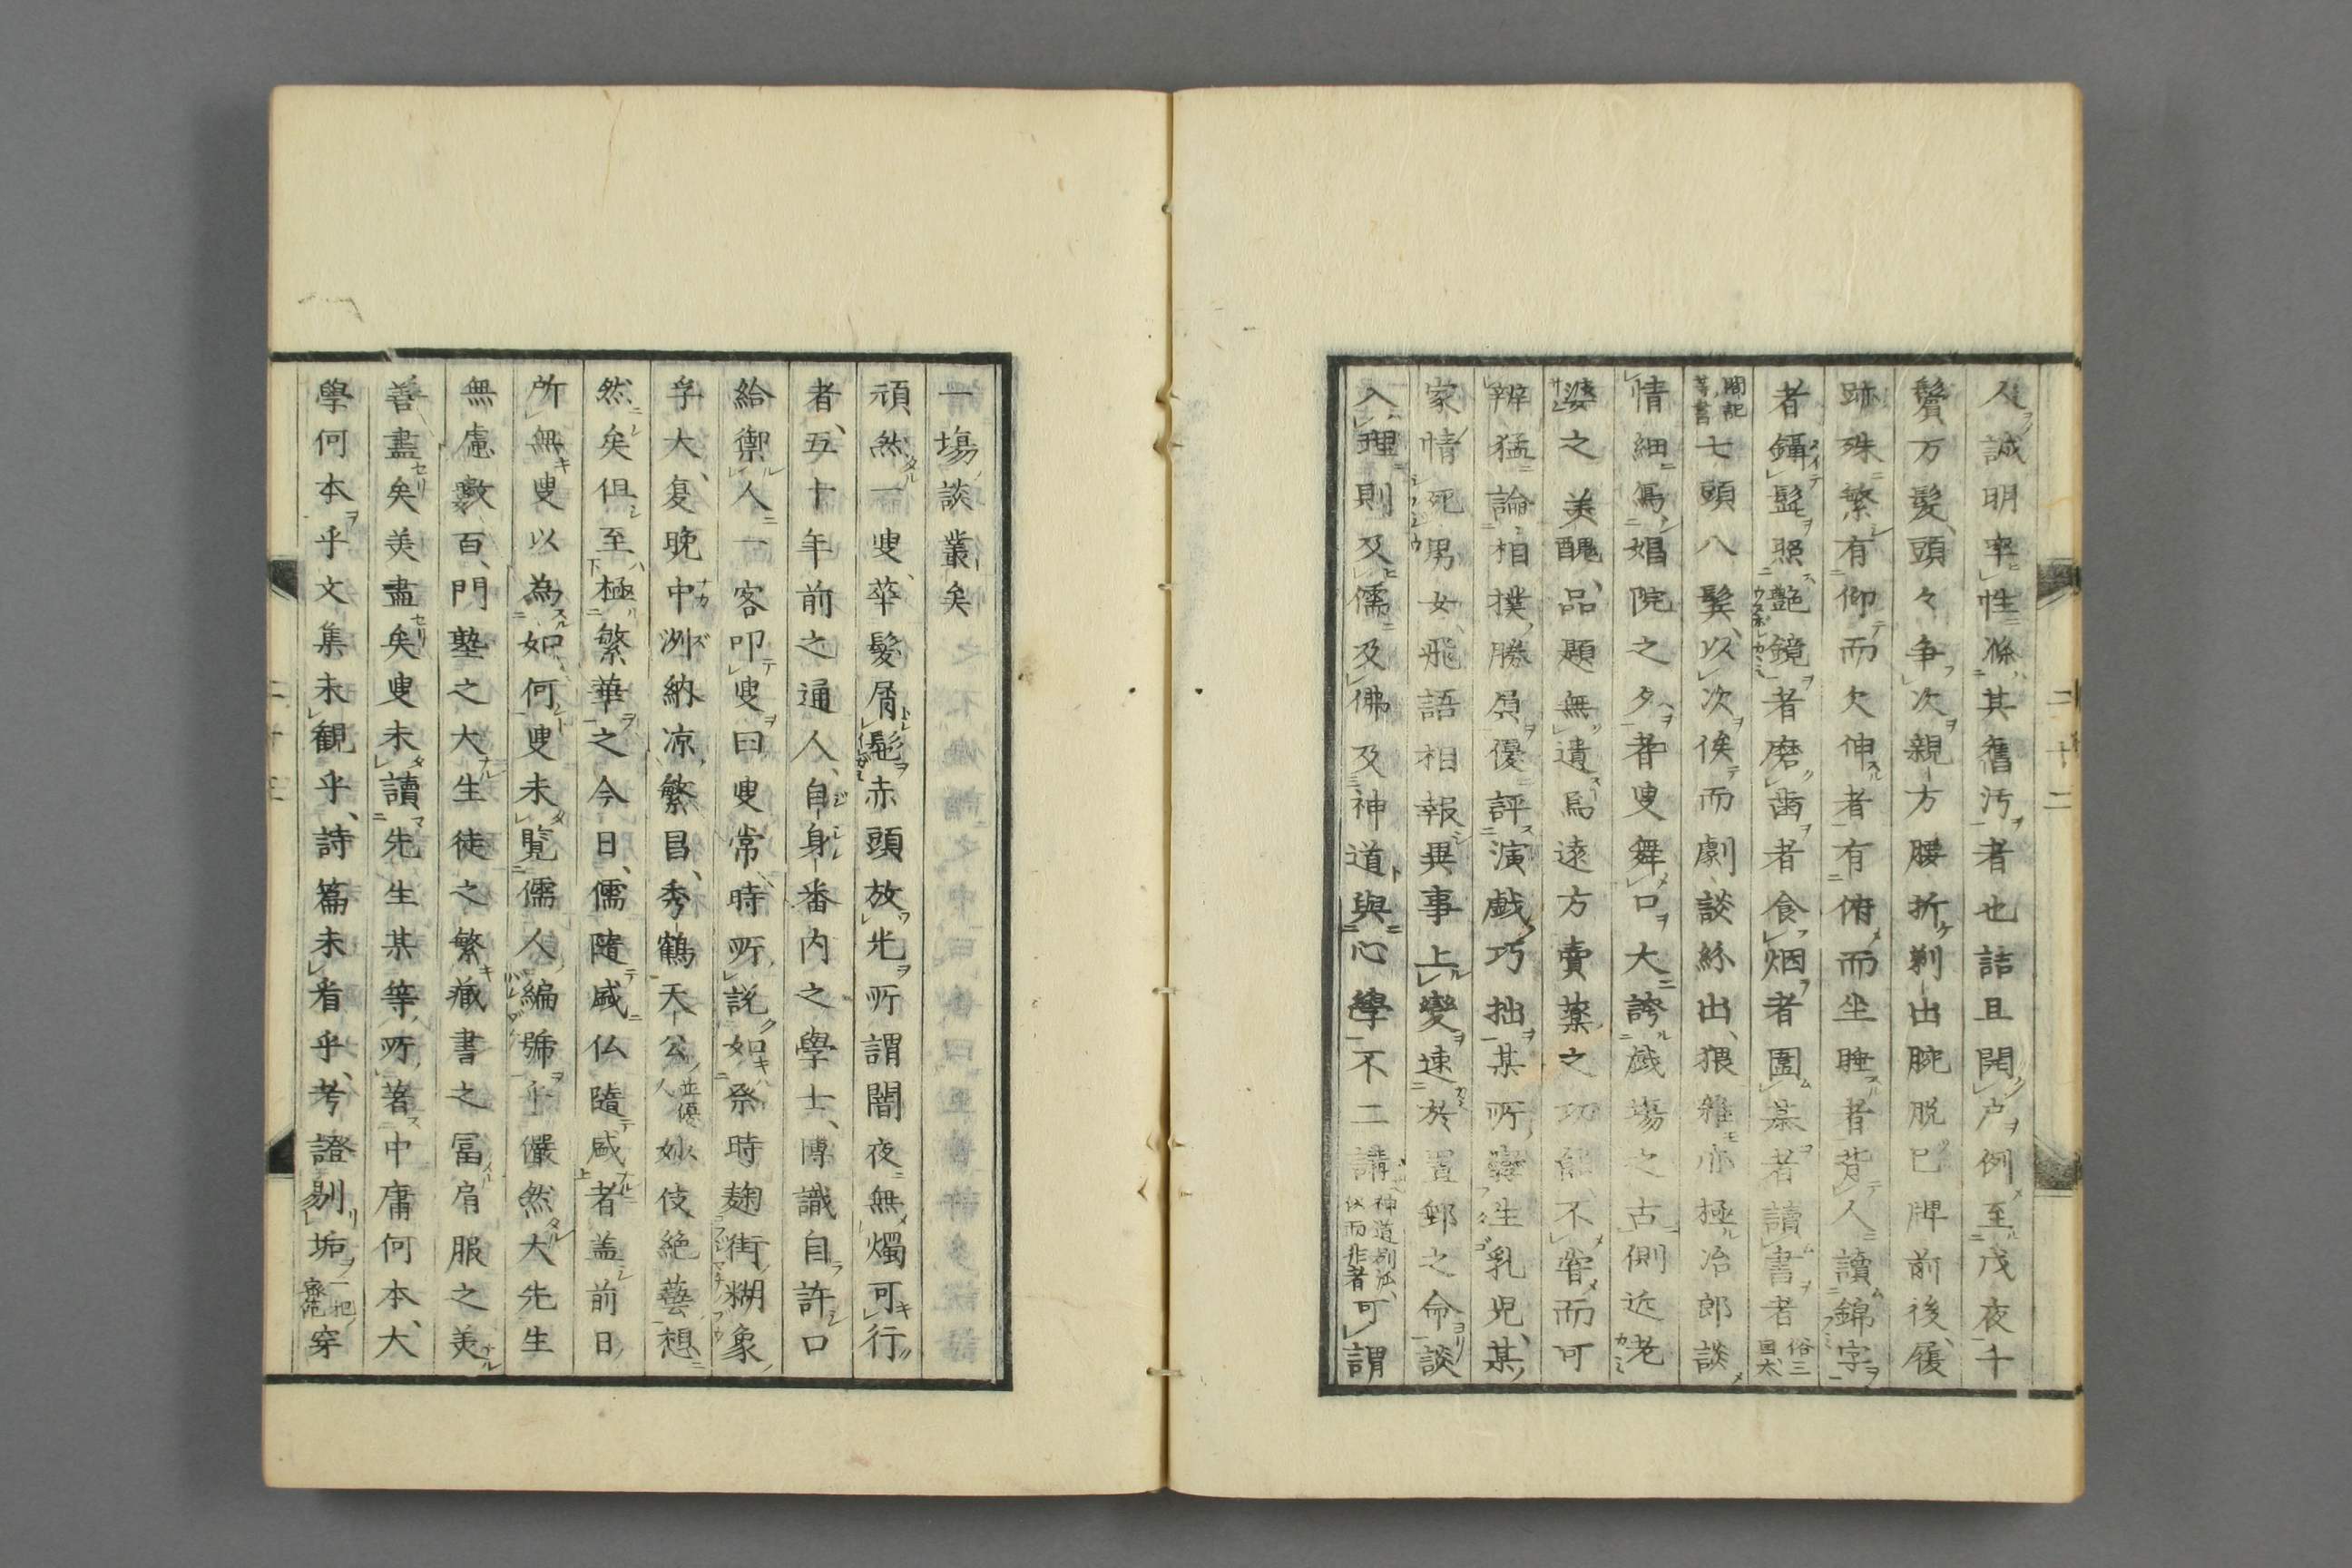 人誠明率性滌其舊汚者也詰且開戸例至戊夜千
鬢万髮頭々争次親方腰折剃出腕脱巳牌前後履
跡殊繁有仰而欠伸者有俯而坐睡者背人讀錦字
者鑷髭照艶鏡者磨歯者食烟者圍棊者讀書者俗三國太
閤記等書七頭八髪以次俟而劇談絲出猥雜亦極冶郎談
情細寫娼院之夕耆叟舞口大誇戯塲之古側近老
婆之美醜品題無遺為遠方賣藥之功能不眢而可
辨猛論相撲勝負優評演戯巧拙某所孿生乳児某
家情死男女飛語相報異事上變速於置郵之命談
入理則及儒及佛及神道與心學不二講神道別派似而非者可謂
二十二
一塲談叢矣
頑然一叟華髮屑髢赤頭放光所謂闇夜無燭可行
者五十年前之通人自身番内之學士博識自許口
給禦人一客叩叟曰叟常時所説如祭時麹街糊象
孚大复晩中洲納凉繁昌秀鶴天公並優人妙伎絶藝想
然矣但至極繁華之今日儒隨盛仏隨盛者盖前日
所無叟以為如何叟未覧儒人編號乎儼然大先生
無慮數百門塾之大生徒之繁藏書之冨肩服之美
善盡矣美盡矣叟未讀先生某等所著中庸何本大
學何本乎文集未観乎詩篇未看乎考證剔垢一把穿